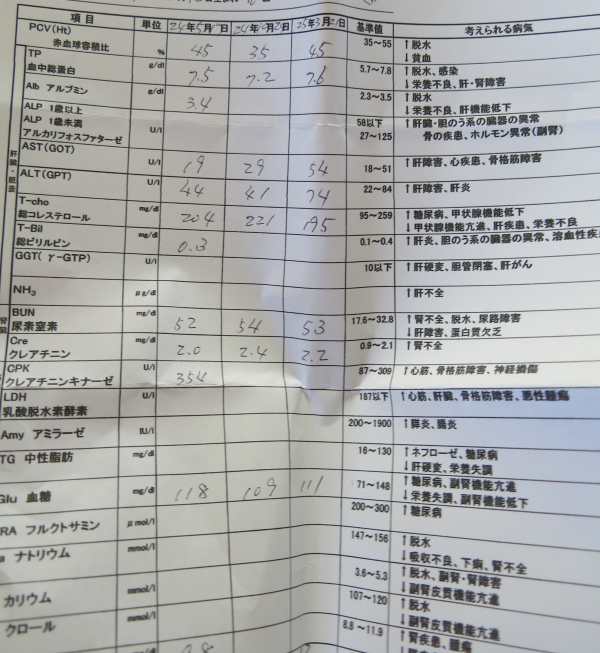 項目 単位 24年5月 日 24年 月2 日 25年3月21日 基準値 考えられる病気
PCV(Ht)
赤血球容積比 % 45 35 45 35〜55 ↑脱水
↓貧血
TP
血中総蛋白 g/dl 7.5 7.2 7.6 5.7〜7.8 ↑脱水、感染
↓栄養不良、肝・腎障害
Alb アルブミン g/dl 3.4 2.3〜3.5 ↑脱水
↓栄養不良、肝機能低下
ALP 1歳以上 58以下 ↑肝臓・胆のう系の臓器の異常
ALP 1歳未満
アルカリフォスファターゼ U/l 27〜125 骨の疾患、ホルモン異常(副腎)
AST(GOT) U/l 19 29 54 18〜51 ↑肝障害、心疾患、骨格筋障害
ALT(GPT) U/l 44 41 74 22〜84 ↑肝障害、肝炎
T-cho
総コレステロール mg/dl 204 221 195 95〜259 ↑糖尿病、甲状腺機能低下
↓甲状腺機能亢進、肝疾患、栄養不良
T-Bil
総ビリルビン mg/dl 0.3 0.1〜0.4 ↑肝炎、胆のう系の臓器の異常、溶血性疾
GGT(γ-GTP) U/l 10以下 ↑肝硬変、胆管閉塞、肝がん
NH₃ μg/dl ↑肝不全
BUN
尿素窒素 mg/dl 52 54 53 17.6〜32.8 ↑腎不全、脱水、尿路障害
↓肝障害、蛋白質欠乏
Cre
クレアチニン mg/dl 2.0 2.4 2.2 0.9〜2.1 ↑腎不全
CPK
クレアチニンキナーゼ U/l 354 87〜309 ↑心筋、骨格筋障害、神経損傷
LDH
乳酸脱水素酵素 U/l 187以下 ↑心筋、肝臓、骨格筋障害、悪性腫瘍
Amy アミラーゼ IU/l 200〜1900 ↑膵炎、腸炎
TG 中性脂肪 mg/dl 16〜130 ↑ネフローゼ、糖尿病
↓肝硬変、栄養失調
Glu 血糖 mg/dl 118 109 111 71〜148 ↑糖尿病、副腎機能亢進
↓栄養失調、副腎機能低下
RA フルクトサミン μmol/l 200〜300 ↑糖尿病
a ナトリウム mmol/l 147〜156 ↑脱水
↓吸収不良、下痢、腎不全
カリウム mmol/l 3.6〜5.3 ↑脱水、副腎・腎障害
↓副腎皮質機能亢進
クロール mmol/l 107〜120 ↑脱水
↓副腎皮質機能亢進
8.8〜11.9 ↑腎疾患、腫瘍
肝臓・胆嚢
腎臓